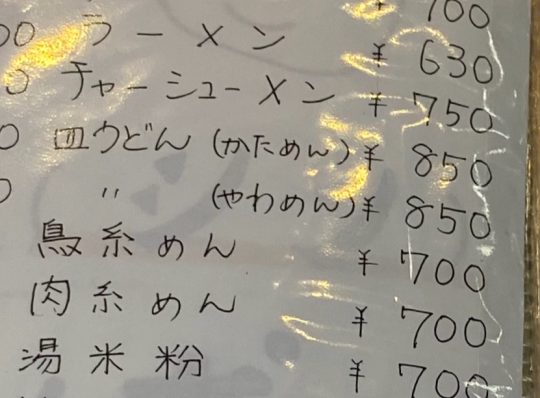 ¥ 700
00 ラーメン ¥ 630
0 チャーシューメン ¥ 750
0 皿うどん (かためん) ¥ 850
0 〃 (やわめん) ¥ 850
鳥糸めん ¥ 700
肉糸めん ¥ 700
湯米粉 ¥ 700